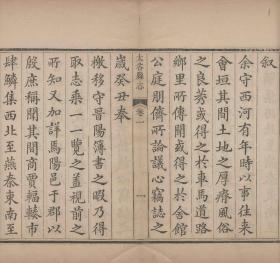 叙
余守西河有年時以事往来
會垣其間土地之厚瘠風俗
之良莠或得之於車馬道路
鄉里所傳聞或得之於舍館
公庭朋儕所論議心竊誌之
太谷縣志
歲癸丑奉
檄移守晉陽簿書之暇乃得
取志乘一一覽之盖視前之
所知又加詳焉陽邑于郡以
殷庶稱聞其間商賈輻輳市
肆鱗集西北至燕秦東南至